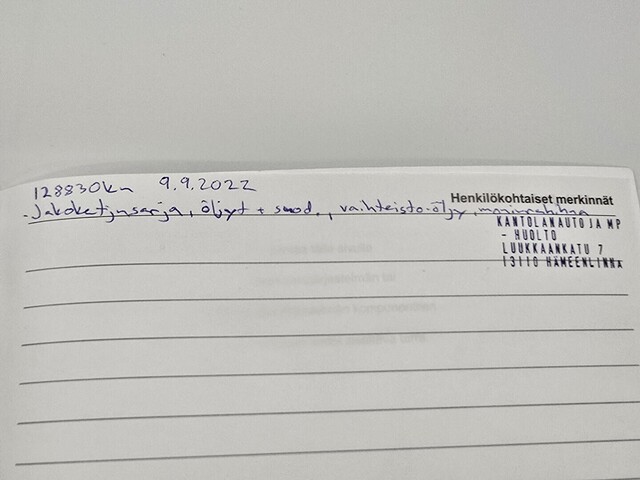 128830km 9.9.2022
Henkilökohtaiset merkinnät
-Jakoketjusarja, öljyt + suod., vaihteisto-öljy, moniurahihna
KANTOLANAUTO JA MP
- HUOLTO
LUUKKAANKATU 7
13110 HÄMEENLINNA